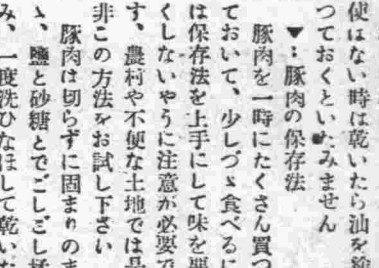 使はない時は乾いたら油を塗
つておくといたみません
▼…豚肉の保存法
豚肉を一時にたくさん買つ
ておいて、少しづゝ食べるに
は保存法を上手にして味を悪
くしないやうに注意が必要で
す、農村や不便な土地では是
非この方法をお試し下さい
豚肉は切らずに固まりのま
ゝ、鹽と砂糖とでごしごし揉
み、一度洗ひなほして乾いた